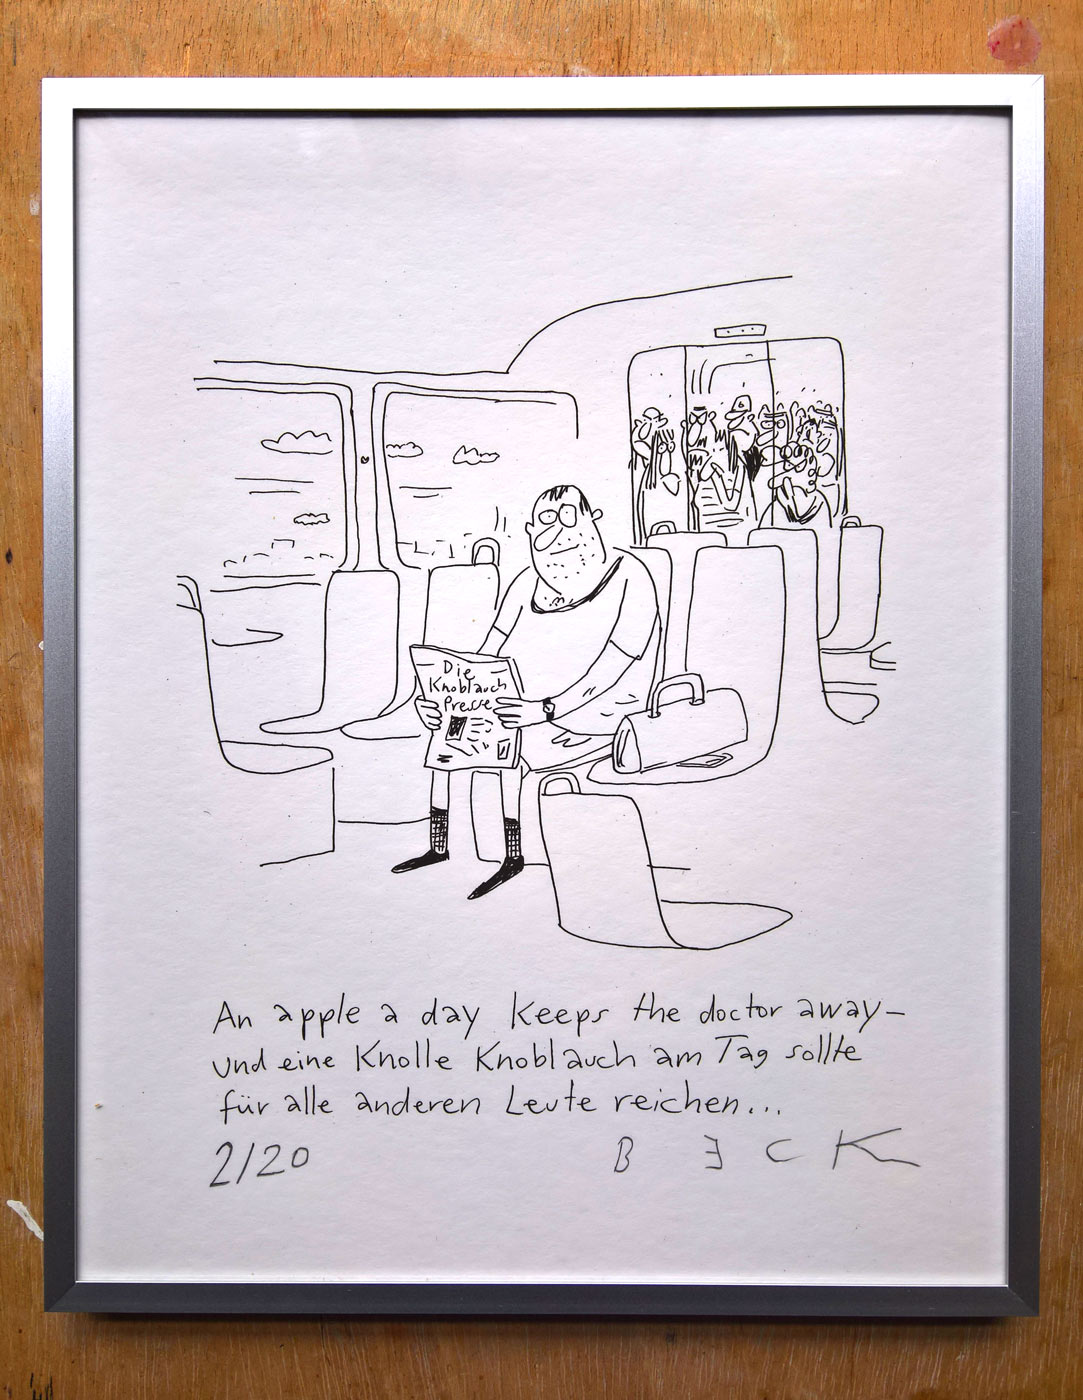 Die
Knoblauch
Presse
An apple a day keeps the doctor away–
und eine Knolle Knoblauch am Tag sollte
für alle anderen Leute reichen...
2/20 BECK